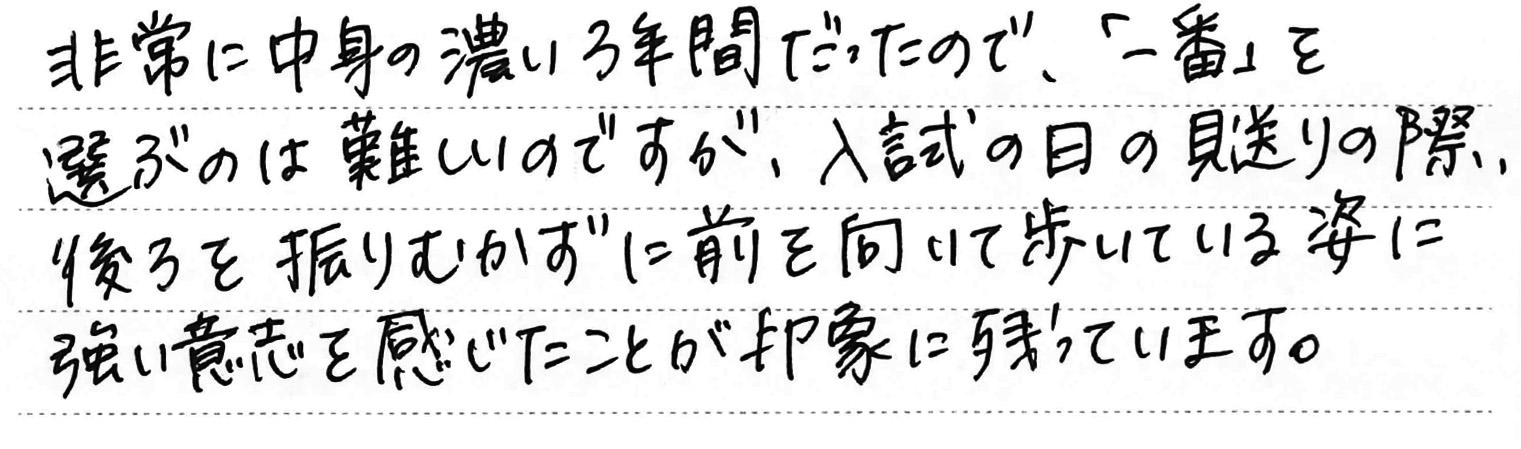 非常に中身の濃い3年間だったので、「一番」を
選ぶのは難しいのですが、入試の日の見送りの際、
後ろを振りむかずに前を向いて歩いている姿に
強い意志を感じたことが印象に残っています。